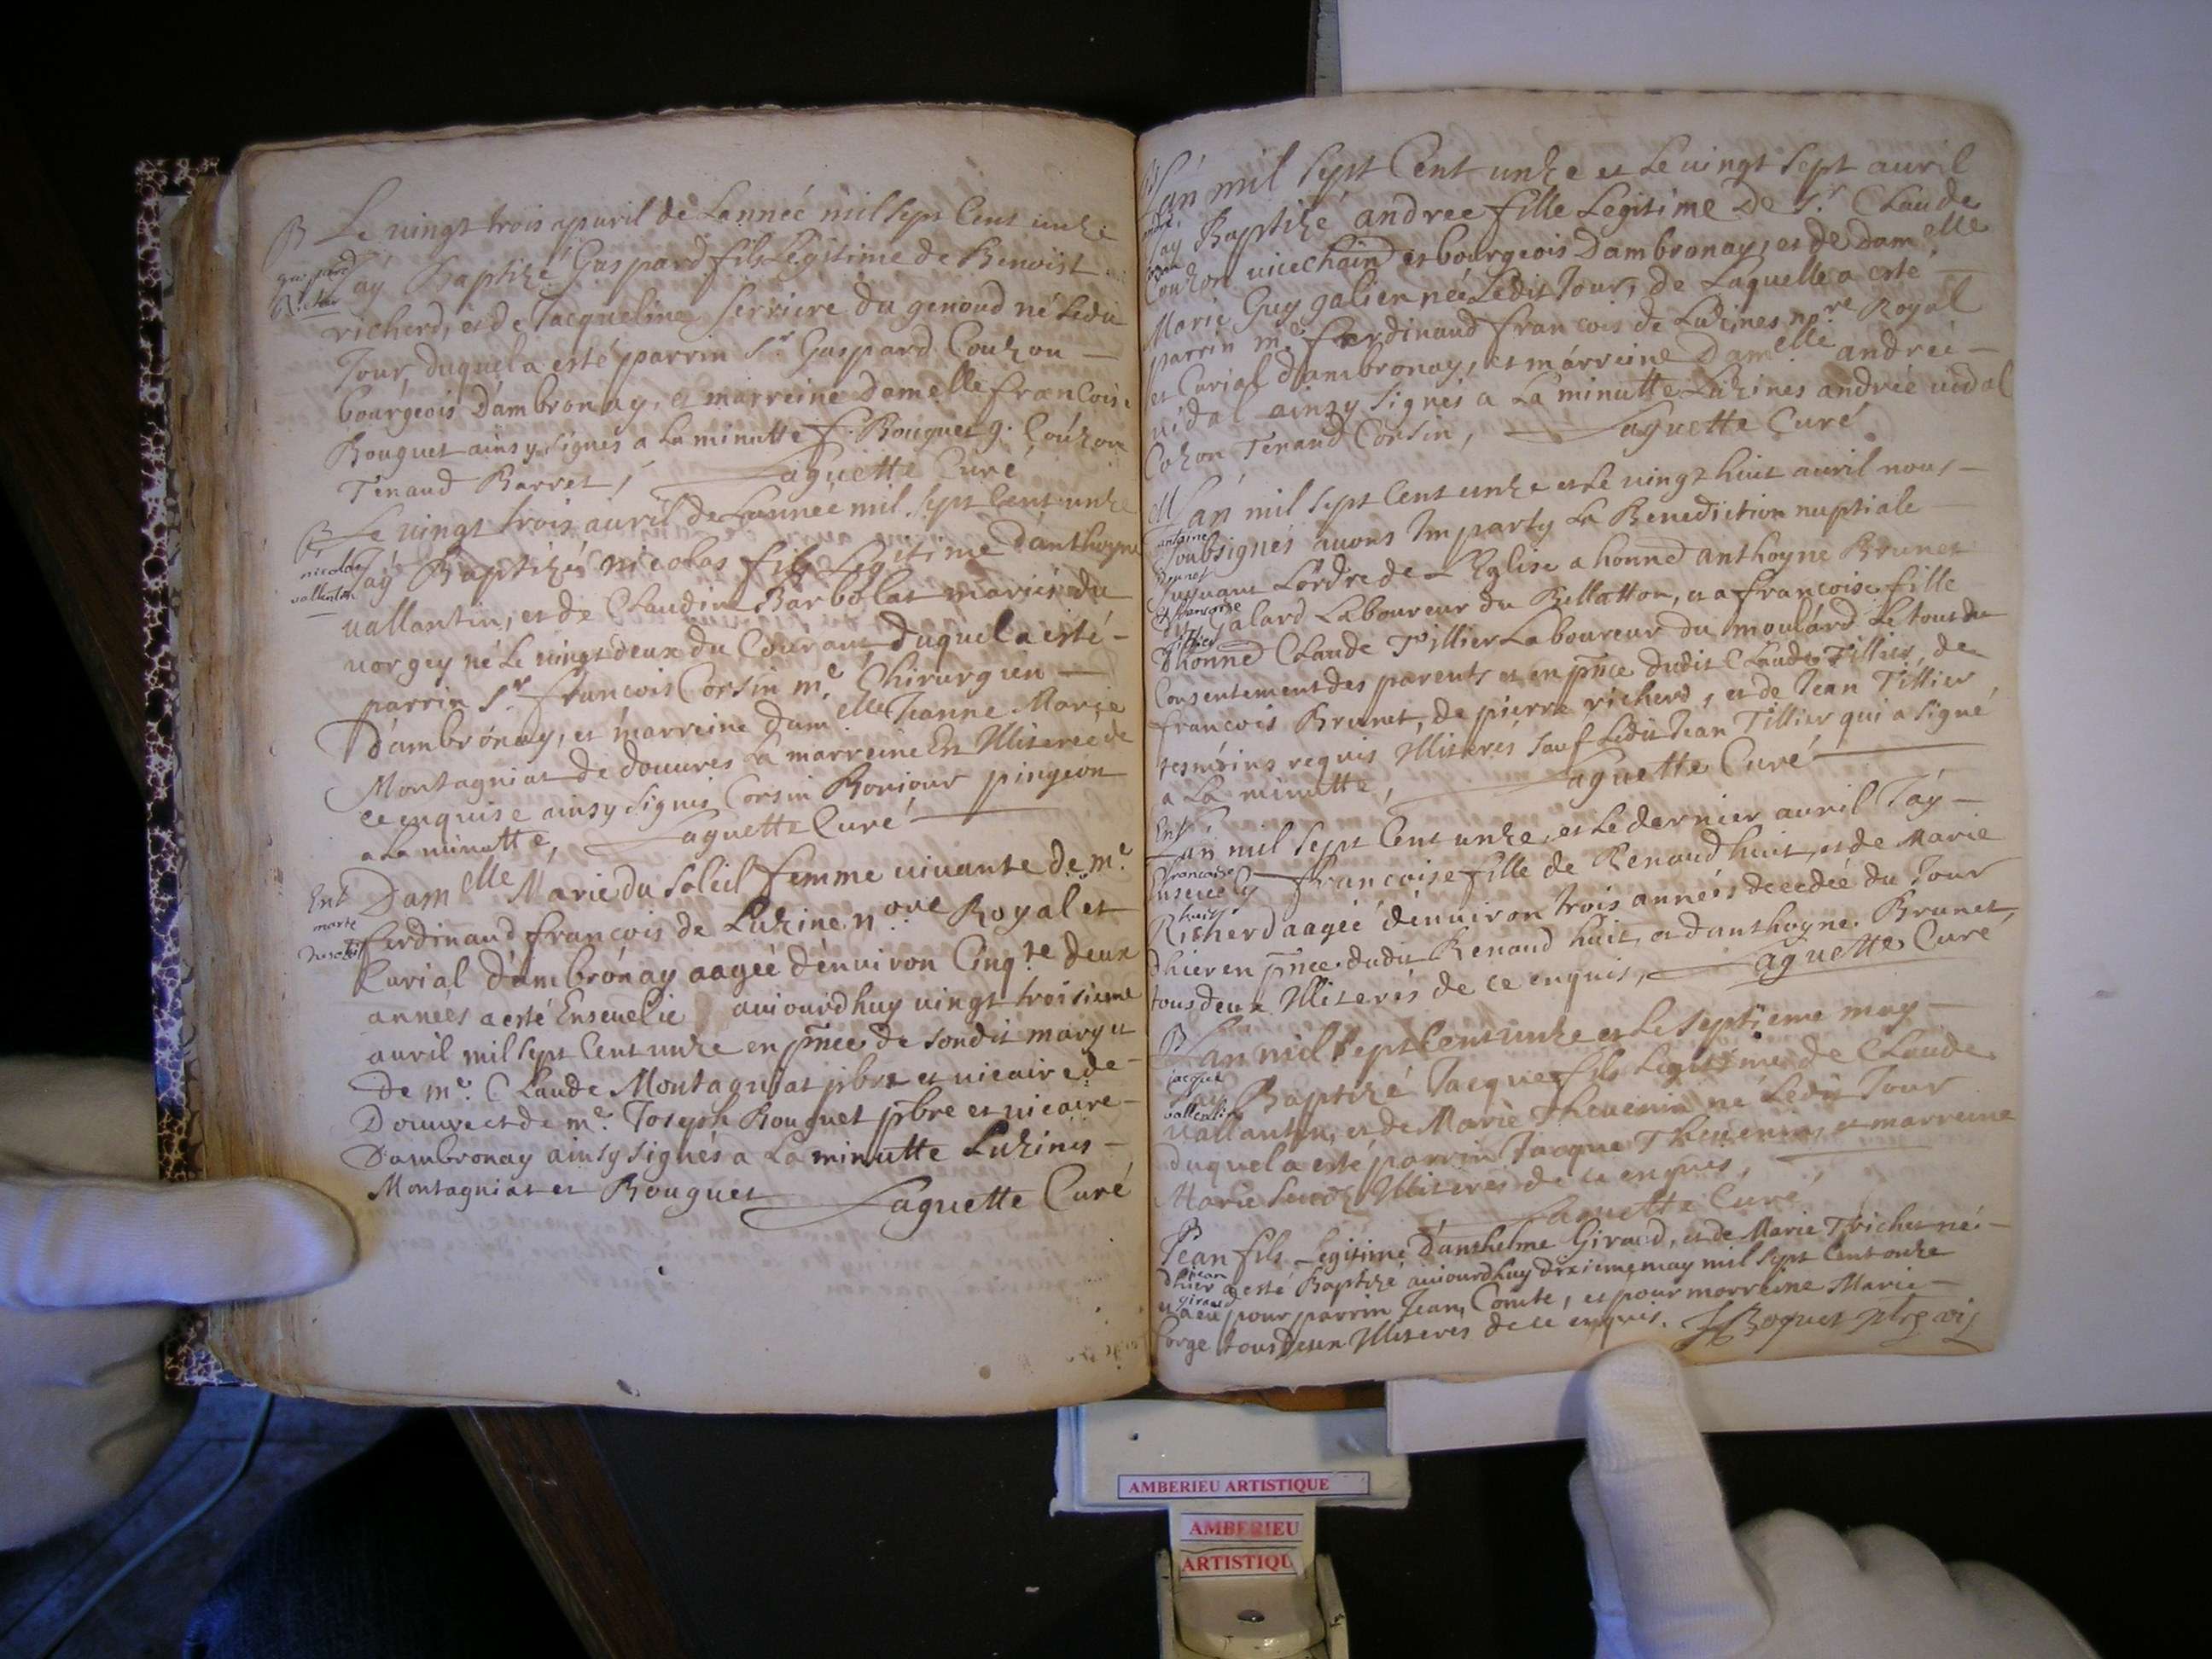 B Le vingt trois apvril de Lanneé mil sept Cent unze
gaspard
Richer
Jaÿ Baptizé Gaspard fils Legitime de Benoist
richerd, et de Jacqueline Serriere du genoud né Ledit
Jour, duquel a esté parrin Sr. Gaspard Couzon —
bourgeois D'ambronay, et marreine Demelle francoise
Bouquet ainsy signés a La minutte f. Bouquet g. Coúzon
Tenaud Barret, Laguette Curé
B Le vingt trois auril de Lanneé mil sept Cent unze
nicolas
vallentin
Jaÿ Baptizés nicolas fils Legitime d'anthoyne
vallantin, et de Claudine Barbolat mariés du
vorgey né Le vingt deux du Courant, duquel a esté -
parrin Sr. francois Corsin me. Chirurgien —
D'ambrónay, et marreine Damelle Jeanne Marie
Montagniat de douvres La marreine Est Illiterée de
ce enquise ainsy signés Corsin Bonjour pingeon
a La minutte, Laguette Curé —
Ent Damelle Marie du Soleil femme vivante de me.
marie
dusoleil
ferdinand francois de Luzine nore Royal et
Curial D'ambrónay aageé d'environ Cinqte deux
années a esté Ensevelie aujourdhuy vingt troisieme
auril mil sept Cent unze en pnce de sondit mary et
De me. Claude Montagniat pbre et vicaire de -
Douvre et de me. Joseph Bouquet pbre et vicaire -
D'ambronay ainsy signés a La minutte Luzines —
Montagniat et Bouquet Laguette Curé
B
Lan mil sept Cent unze et Le vingt sept auril
Jay Baptizé andree fille Legitime de Sr. Claude
Couzon vicechain et bourgeois Dambronay, et de Damelle
Marie Guy galien née Ledit Jour, de Laquelle a esté —
parrin me. ferdinand francois de Luzines nore Royal
et Curial d'ambronay, et márreine Damelle andreé —
vidal ainsy signés a La minutte Luzines andreé vidal
Cozon Tenaud Corsin, Laguette Curé
M Lan mil sept Cent unze et Le vingt huit auril nous —
antoine
Brunet
et francoise
tillier
soubsignés avons Imparty La Benediction nuptiale
suyvant Lordre de L'Eglise a honned anthoyne Brunet
dit Galard Laboureur du Bellatton, et a francoise fille
D'honned Claude Tillier Laboureur du moulárd Le tout du
Consentement des parents et en pnce dudit Claude Tillier, de
francois Brunet, de pierre richerd, et de Jean Tillier
tesmóins requis Illiterés sauf Ledit Jean Tillier qui a signé
a La minutte, Laguette Curé —
Ent
Lan mil sept Cent unze, et Le dernier auril Jáy —
francoise
huit
Ensevely francoise fille de Renaud huit, et de Marie
Richerd aageé d'environ trois années decedée du Jour
dhier en pnce dudit Renaud huit, et d'anthoyne Brunet,
tous deux Illiterés de ce enquis, Laguette Curé
B
Lan mil sept Cent unze et Le septieme may —
jacque
vallentin
Jay Baptizé Jacque fils Legitime de Claude
vallantin, et de Marie Thevenin né Ledit Jour
duquel a esté parrin Jacque Thevenin, et marreine
Marie Illiterés de ce enquis,
Laguette Curé
B
Jean fils Legitime D'anthelme Giraud, et de Marie Trichet né —
jean
giraud
dhier a esté Baptizé aujourdhuy dixieme may mil sept Cent onze
et a eu pour parrin Jean Comte, et pour marreine Marie —
Lorge tous deux Illiterés de ce enquis. J Boquet
AMBERIEU ARTISTIQUE
AMBERIEU
ARTISTIQU